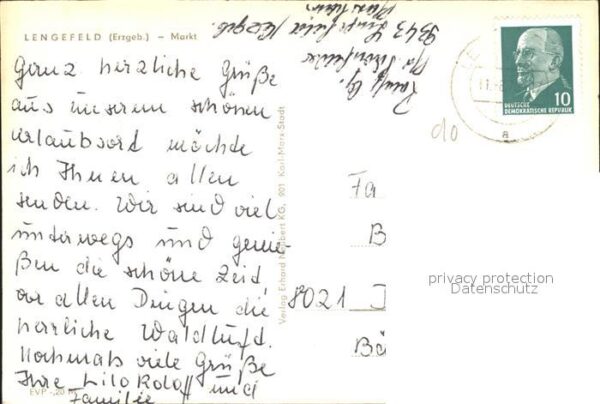 LENGEFELD (Erzgeb.) – Markt
Ganz herzliche Grüße
aus unserem schönen
Urlaubsort möchte
ich Ihnen allen
senden. Wir sind viel
unterwegs und genie
ßen die schöne Zeid,
vor allen Dingen die
herrliche Waldluft.
Nochmals viele Grüße
Ihre Lilo und
Familie
EVP -,20 M
Verlag Erhard Neubert KG, 901 Karl-Marx-Stadt
9343
DEUTSCHE
DEMOKRATISCHE REPUBLIK
10
a
Fa
B
8021
Bä
privacy protection
Datenschutz